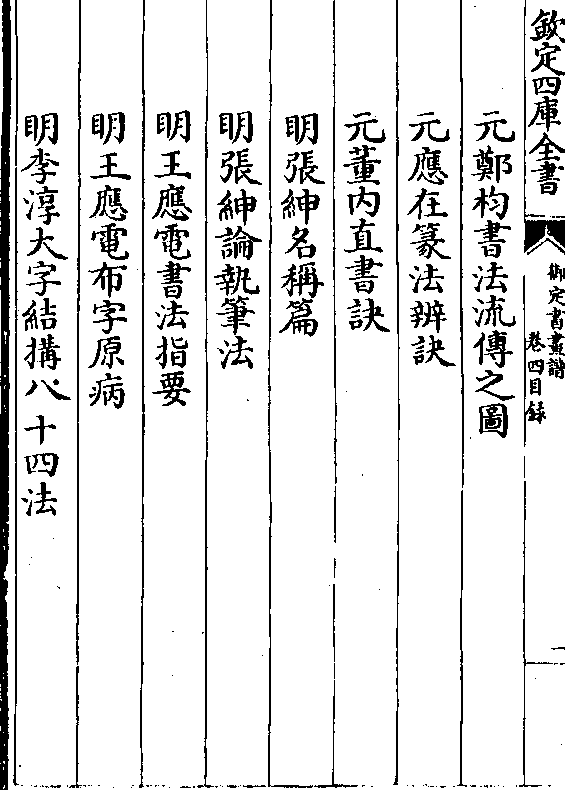 欽定四庫全書
御定書畫譜
卷四目録
一
元鄭杓書法流傳之圖
元應在篆法辨訣
元董内直書訣
明張紳名稱篇
明張紳論執筆法
明王應電書法指要
明王應電布字原病
明李淳大字結搆八十四法